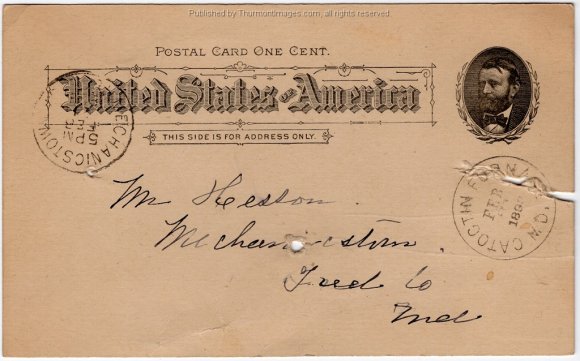 Published by Thurmontimages.com, all rights reserved.
POSTAL CARD ONE CENT.
United States of America
THIS SIDE IS FOR ADDRESS ONLY.
MECHANICSTOWN
5 PM
CATOCTIN FURNACE, MD.
FEB
Mr Hesson
Mechanicstown
Fred Co
Md